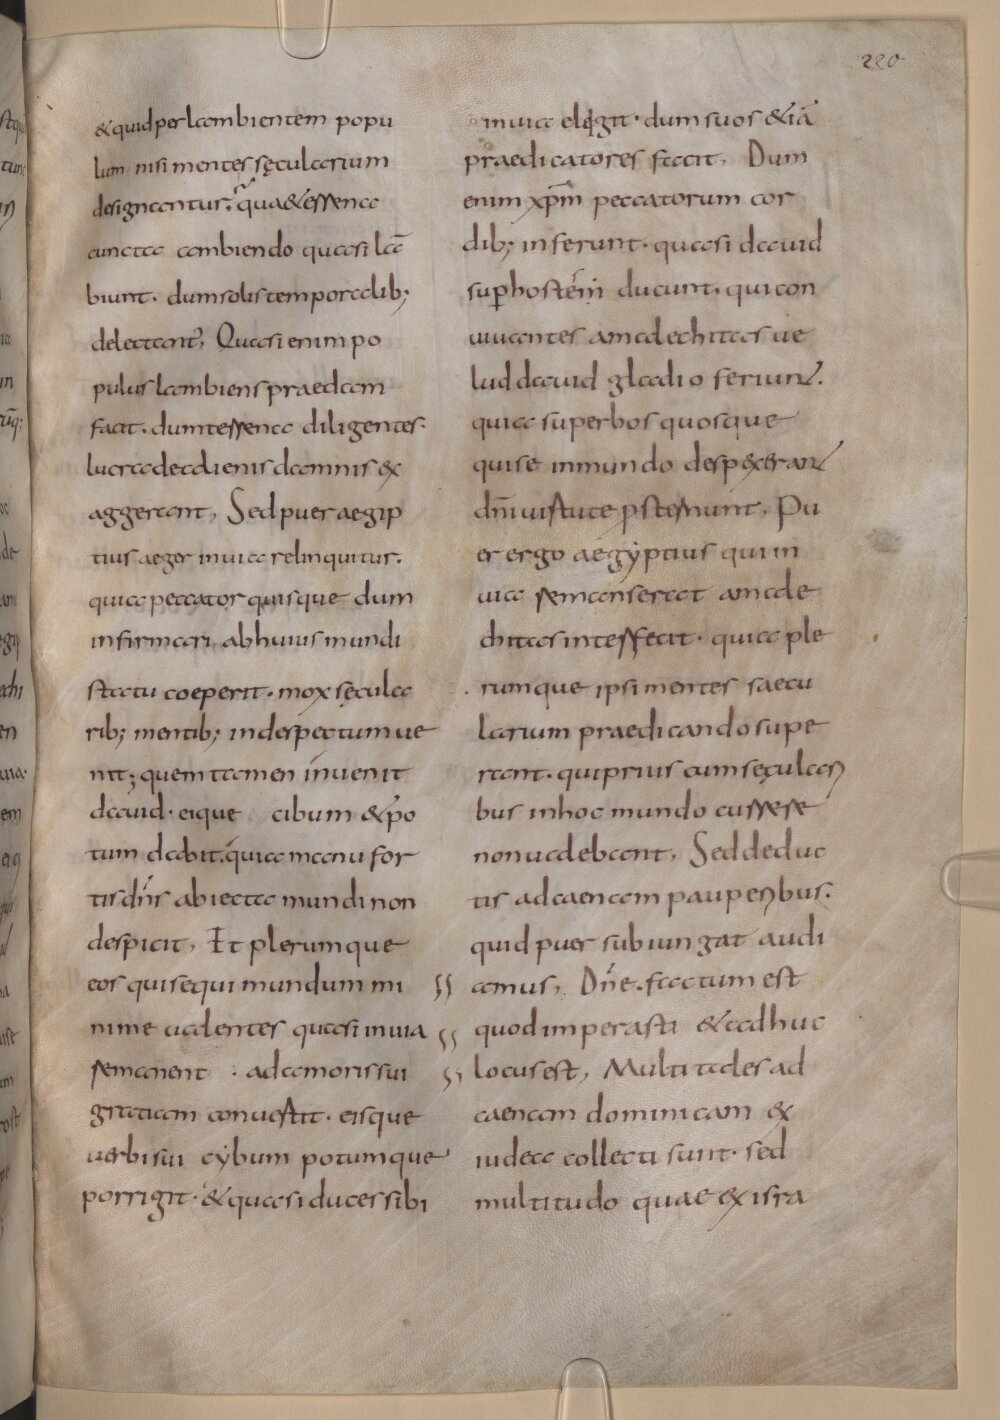 220
&quid per lambientem popu
lum nisi mentes sęcularium
designantur. qua&essena
cuncta ambiendo quasi lā
biunt. dum solis temporalib;
delectant̄, Quasi enim po
pulus lambiens praedam
facit. dum terrena diligentes.
lucra de alienis damnis ex
aggerant, Sed puer aegip
tius aeger in uia relinquitur.
quia peccator quisque dum
infirmari ab huius mundi
statu coeperit. mox sęcula
rib; mentib; in despectum ue
nit; quem tamen inuenit
dauid. eique cibum & po
tum dabit. quia manu for
tis dn̄s abiecta mundi non
despicit, Et plerumque
eos qui sequi mundum mi
nime ualentes quasi in uia
remanent . ad amoris sui
gratiam conuertit. eisque
uerbi sui cybum potumque
porrigit. & quasi duces sibi
in uia elegit. dum suos &iā
praedicatores facit, Dum
enim xp̄m peccatorum cor
dib; inferunt. quasi dauid
sup hostem ducunt, qui con
uiuantes amalechitas ue
lud dauid gladio feriunt.
quia superbos quosque
qui se in mundo despexerant
dn̄i uirtute psternunt, Pu
er ergo aegyptius qui in
uia remanserat amale
chitas interfecit. quia ple
rumque ipsi mentes saecu
larium praedicando supe
rant. qui prius cum sęculari
bus in hoc mundo currere
non ualebant, Sed deduc
tis ad caenam pauperibus.
quid puer subiungat audi
amus, Dn̄e. factum est
quod imperasti & adhuc
locus est, Multi tales ad
caenam dominicam ex
iudea collecti sunt. sed
multitudo quae ex isra